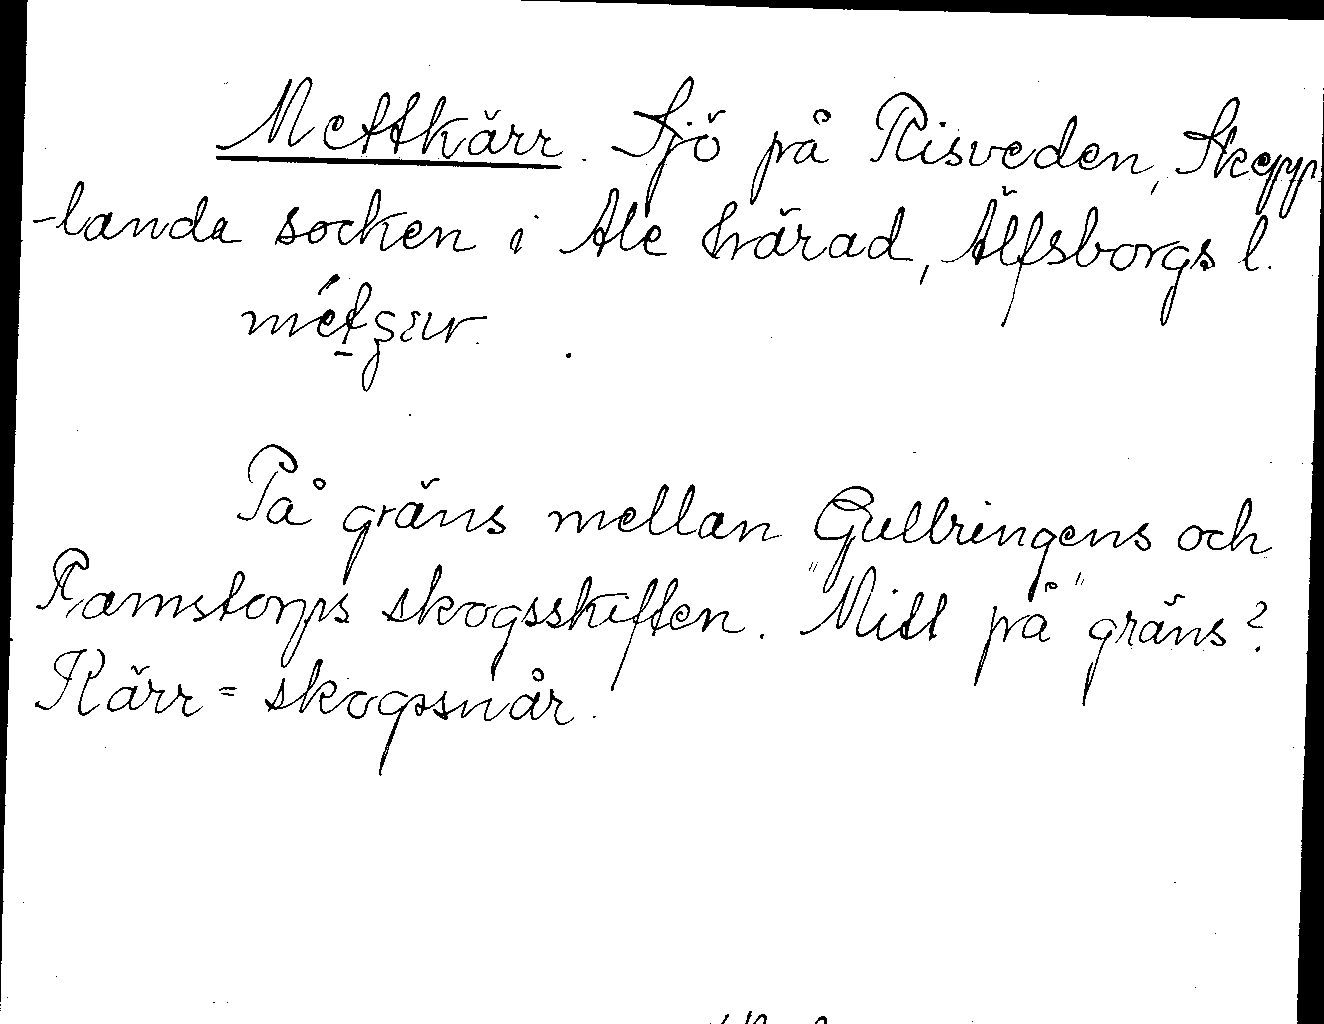 Mettkärr. Sjö på Risveden, Skepp
-landa socken i Ale härad, Älfsborgs l.
På gräns mellan Gullringens och
Ramstorps skogsskiften. "Mitt på" gräns?
Kärr = skogssnår.